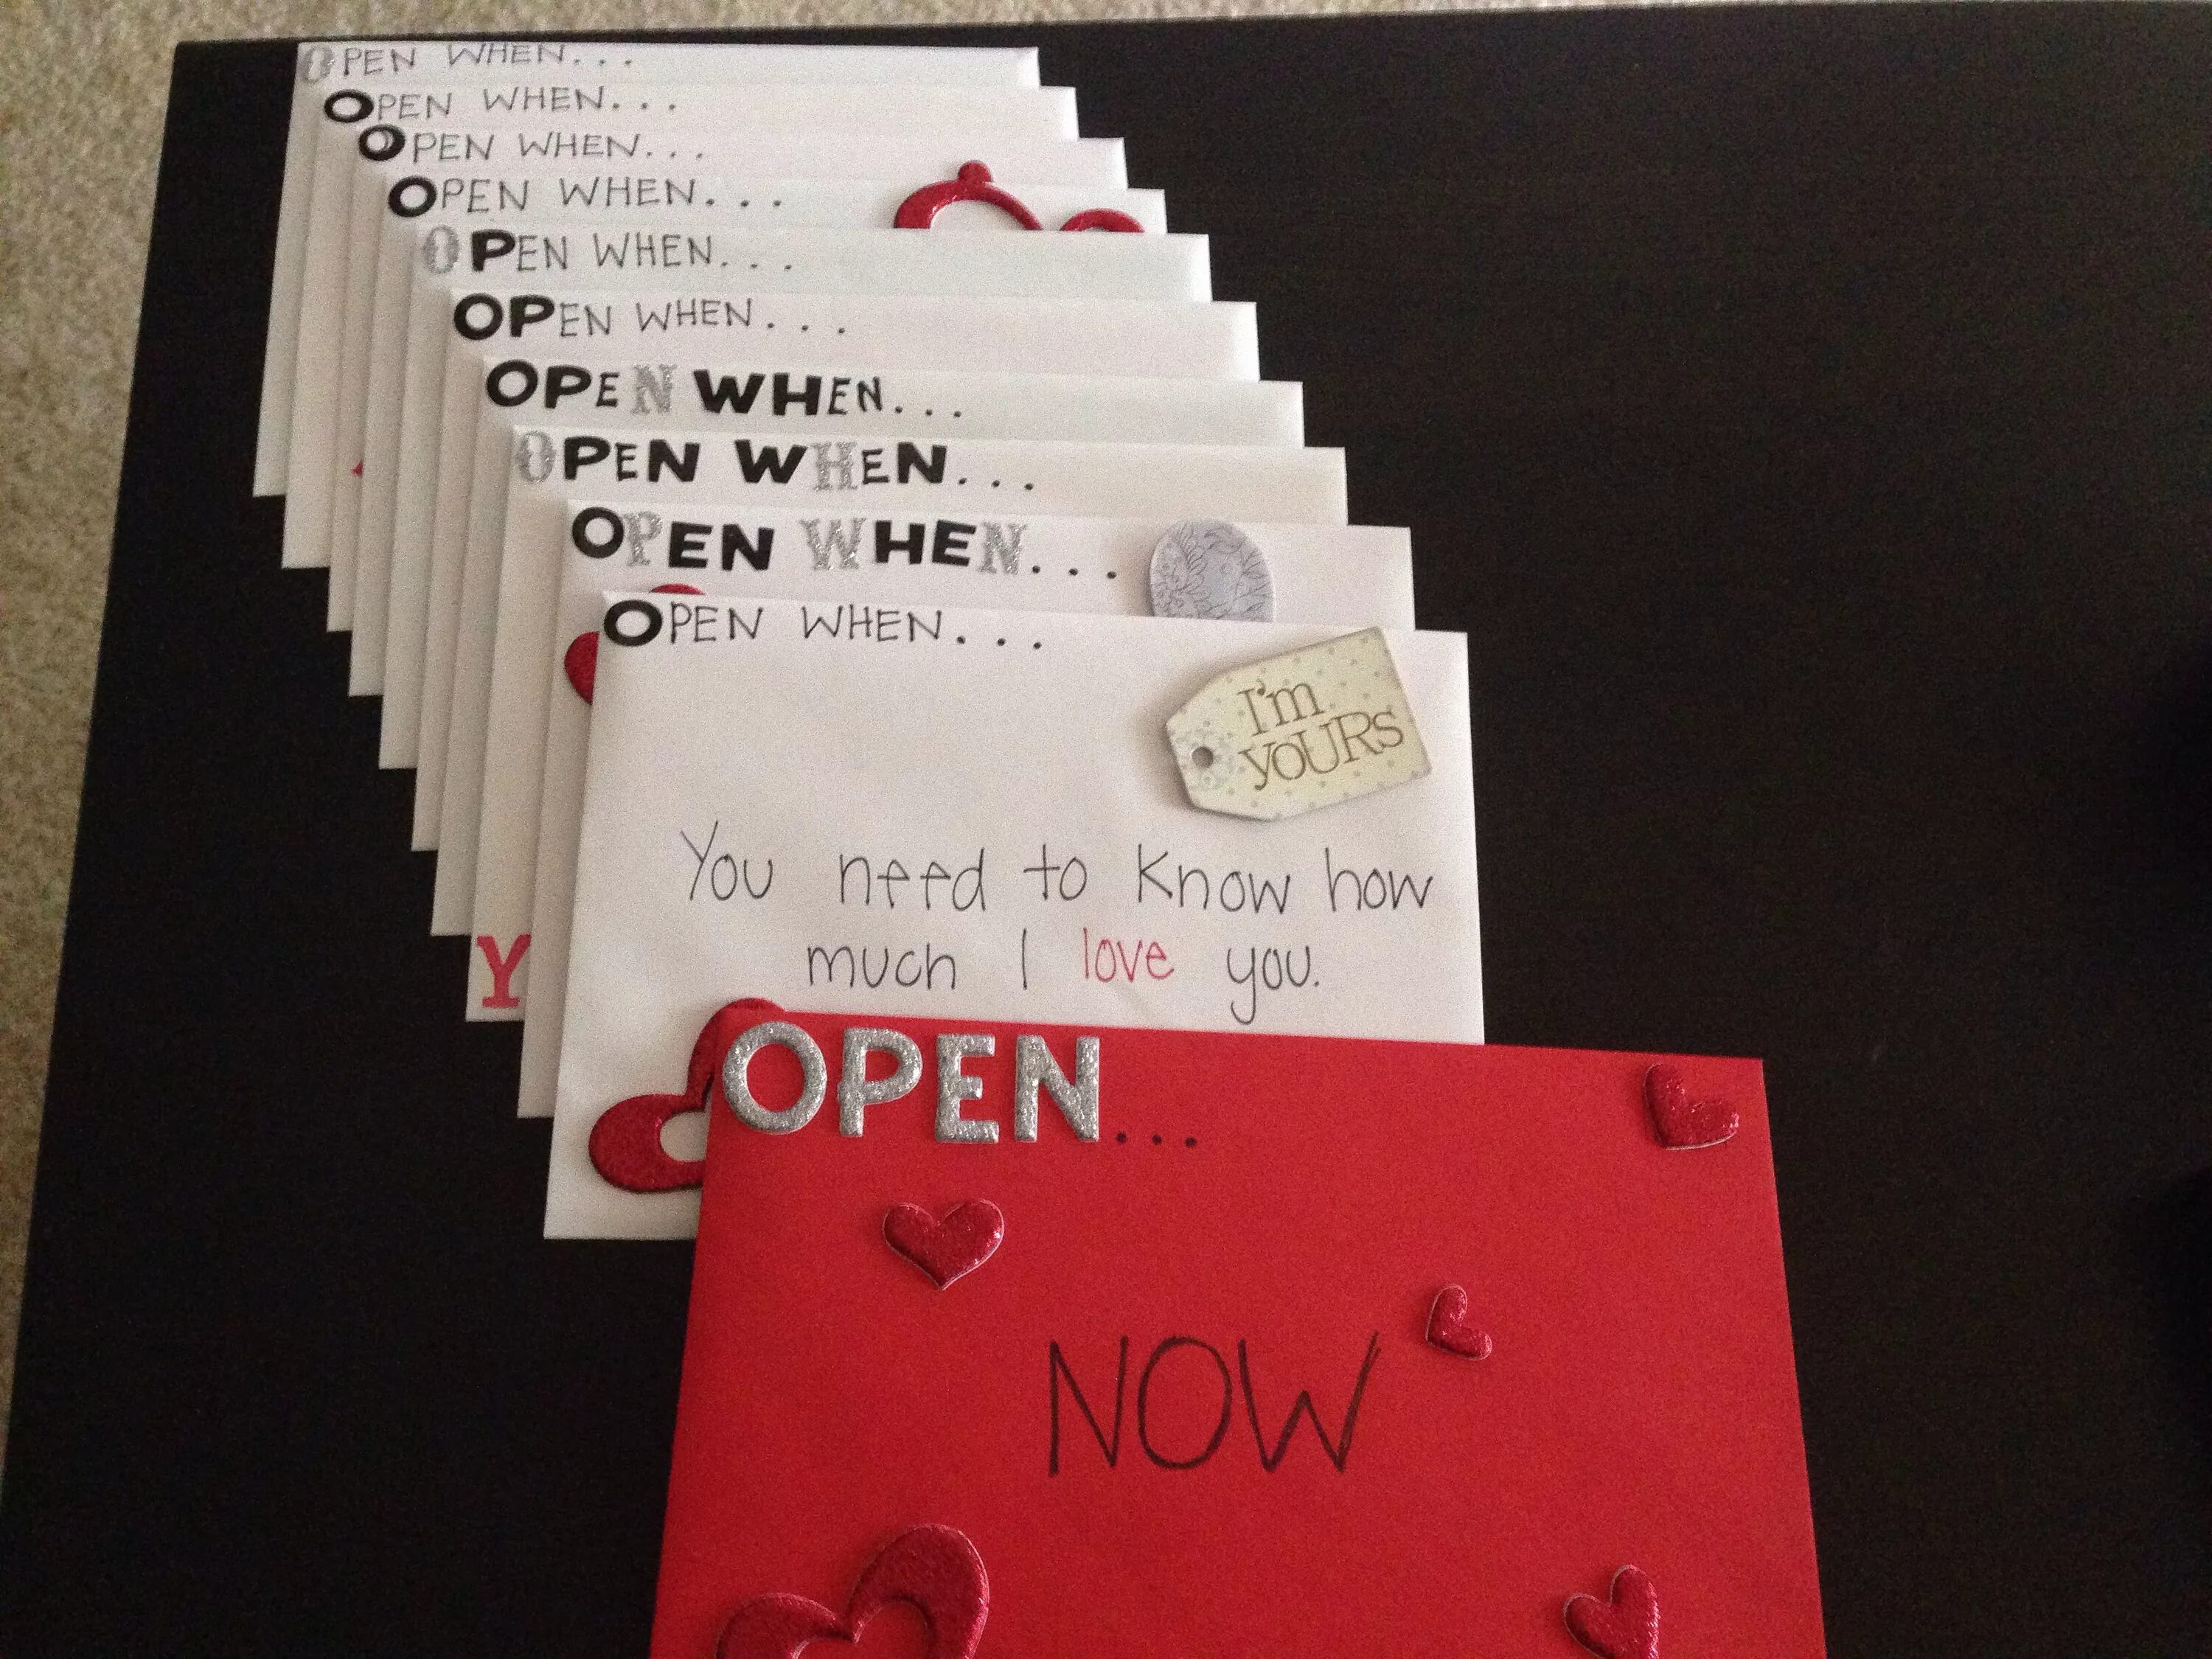 OPEN WHEN...
OPEN WHEN...
OPEN WHEN...
OPEN WHEN...
OPEN WHEN...
OPEN WHEN...
OPEN WHEN...
OPEN WHEN...
OPEN WHEN...
OPEN WHEN...
I'm
YOURS
You need to know how
much I love you.
Y
OPEN...
NOW